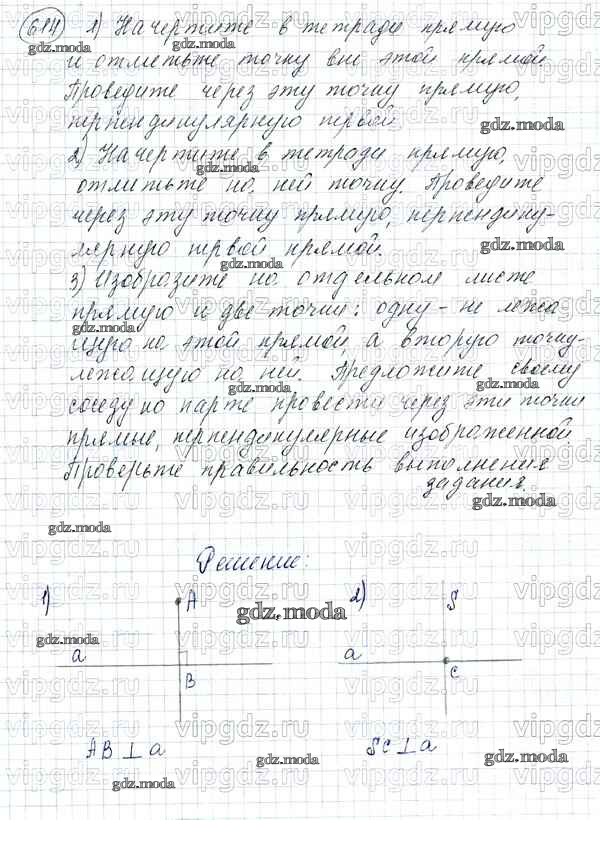 614 1) Начертите в тетради прямую
и отметьте точку вне этой прямой.
Проведите через эту точку прямую,
перпендикулярную первой.
2) Начертите в тетради прямую,
отметьте на ней точку. Проведите
через эту точку прямую, перпендику-
лярную первой прямой.
3) Изобразите на отдельном листе
прямую и две точки: одну - не лежа
щую на этой прямой, а вторую точку-
лежащую на ней. Предложите своему
соседу по парте провести через эти точки
прямые, перпендикулярные изображенной.
Проверьте правильность выполнения
задания.
Решение:
1) A 2) S
a B a C
AB ⊥ a SC ⊥ a
gdz.moda
vipgdz.ru